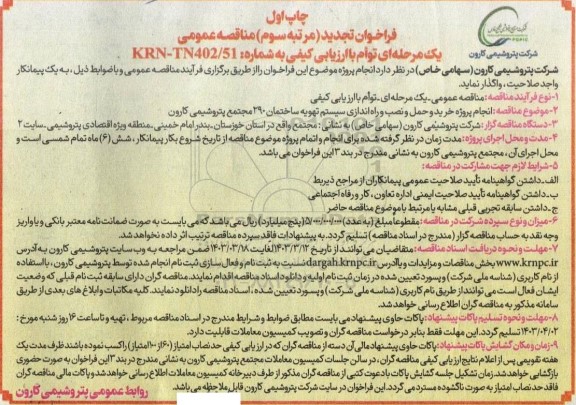 چاپ اول
فراخوان تجدید (مرتبه سوم) مناقصه عمومی
یک مرحله‌ای توأم با ارزیابی کیفی به شماره: KRN-TN402/51
شرکت پتروشیمی کارون
شرکت پتروشیمی کارون (سهامی خاص) در نظر دارد انجام پروژه موضوع این فراخوان را از طریق برگزاری فرآیند مناقصه عمومی و با ضوابط ذیل، به یک پیمانکار
واجد صلاحیت، واگذار نماید.
۱-نوع فرآیند مناقصه: مناقصه عمومی-یک مرحله‌ای-توأم با ارزیابی کیفی
۲-موضوع مناقصه: انجام پروژه خرید و حمل و نصب و راه اندازی سیستم تهویه ساختمان ۲۹۰ مجتمع پتروشیمی کارون
۳-دستگاه مناقصه گزار: شرکت پتروشیمی کارون (سهامی خاص) به نشانی: مجتمع واقع در استان خوزستان-بندر امام خمینی-منطقه ویژه اقتصادی پتروشیمی-سایت ۲
۴-مدت و محل اجرای پروژه: مدت زمان در نظر گرفته شده برای انجام و اتمام پروژه موضوع مناقصه از تاریخ شروع بکار پیمانکار، شش (۶) ماه تمام شمسی است و
محل اجرای آن، مجتمع پتروشیمی کارون به نشانی مندرج در بند ۳ این فراخوان می باشد.
۵-شرایط لازم جهت مشارکت در مناقصه:
الف.داشتن گواهینامه تأیید صلاحیت عمومی پیمانکاران از مراجع ذیربط
ب.داشتن گواهینامه تأیید صلاحیت ایمنی اداره تعاون، کار و رفاه اجتماعی
ج.داشتن سابقه تجربی قبلی مشابه یا مرتبط با موضوع مناقصه حاضر
۶-میزان و نوع سپرده شرکت در مناقصه: مقطوعاً مبلغ (به عدد) ۵/۰۰۰/۰۰۰/۰۰۰ (پنج میلیارد) ریال می باشد که می بایست به صورت ضمانت نامه معتبر بانکی و یا واریز
وجه نقد به حساب مناقصه گزار (مندرج در اسناد مناقصه) تسلیم گردد. به پیشنهادات فاقد سپرده مناقصه ترتیب اثر داده نخواهد شد.
۷-مهلت و نحوه دریافت اسناد مناقصه: متقاضیان می توانند از تاریخ ۱۴۰۳/۳/۱۲ لغایت ۱۴۰۳/۰۳/۱۸ ضمن مراجعه به وب سایت پتروشیمی کارون به آدرس
www.krnpc.ir بخش مناقصات و مزایدات و یا آدرس dargah.krnpc.ir نسبت به ثبت نام و فعال سازی ثبت نام انجام شده توسط پتروشیمی کارون، با استفاده
از نام کاربری (شناسه ملی شرکت) و پسورد تعیین شده در زمان ثبت نام اولیه و دانلود اسناد مناقصه اقدام نمایند. مناقصه گران دارای سابقه ثبت نام قبلی که وضعیت
ایشان فعال است می توانند از طریق نام کاربری (شناسه ملی شرکت) و پسورد تعیین شده، اسناد مناقصه را دانلود نمایند. کلیه مکاتبات و ابلاغ های بعدی از طریق
سامانه مذکور به مناقصه گران اطلاع رسانی خواهد شد.
۸-مهلت و نحوه تسلیم پاکات پیشنهاد: پاکات حاوی پیشنهاد می بایست مطابق ضوابط و شرایط مندرج در اسناد مناقصه مربوط، تهیه و تا ساعت ۱۶ روز شنبه مورخ:
۱۴۰۳/۰۴/۰۲ تسلیم گردد. این مهلت فقط بنابر درخواست مناقصه گران و تصویب کمیسیون معاملات قابلیت دارد.
۹-زمان و مکان گشایش پاکات پیشنهاد: پاکات حاوی پیشنهاد مالی آن دسته از مناقصه گران که در ارزیابی کیفی حد نصاب امتیاز (۶۰ از ۱۰۰ امتیاز) را کسب نموده باشند ظرف مدت یک
هفته تقویمی پس از اعلام نتایج ارزیابی کیفی مناقصه گران، در سالن جلسات کمیسیون معاملات مجتمع پتروشیمی کارون به نشانی مندرج در بند ۳ این فراخوان به صورت حضوری
بازگشایی خواهد شد. زمان تشکیل جلسه گشایش پاکات با دعوت کتبی از مناقصه گران مذکور از طرف دبیرخانه کمیسیون معاملات اطلاع رسانی خواهد شد و پاکات مالی مناقصه گران
فاقد حد نصاب امتیاز به صورت ناگشوده مسترد می گردد. این فراخوان در سایت شرکت پتروشیمی کارون قابل ملاحظه می باشد.
روابط عمومی پتروشیمی کارون